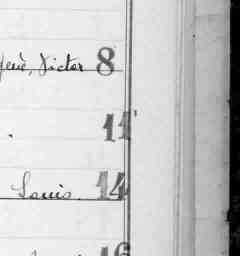 Victor 8
11
Louis 14
16